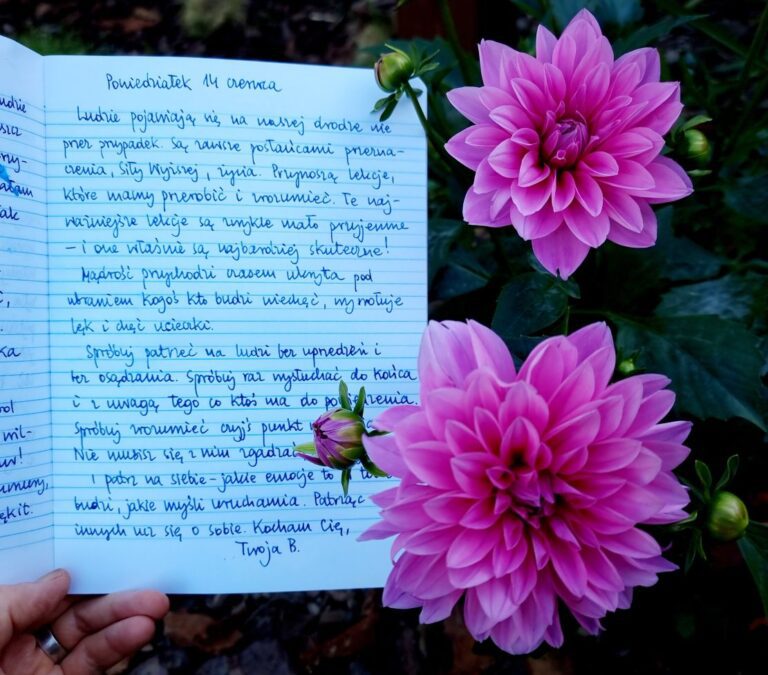 Poniedziałek 14 czerwca
Ludzie pojawiają się na naszej drodze nie
przez przypadek. Są zawsze posłańcami przezna-
czenia, Siły Wyższej, życia. Przynoszą lekcje,
które mamy przerobić i zrozumieć. Te naj-
ważniejsze lekcje są zwykle mało przyjemne
– i one właśnie są najbardziej skuteczne!
Mądrość przychodzi czasem ukryta pod
ubraniem kogoś kto budzi niechęć, wywołuje
lęk i chęć ucieczki.
Spróbuj patrzeć na ludzi bez uprzedzeń i
bez osądzania. Spróbuj raz wysłuchać do końca
i z uwagą tego co ktoś ma do powiedzenia.
Spróbuj zrozumieć czyjś punkt
Nie musisz się z nim zgadzać
I patrz na siebie – jakie emocje to w
budzi, jakie myśli uruchamia. Patrząc
innych ucz się o sobie. Kocham Cię,
Twoja B.
udzie
szcz
zy-
atam
jak
ć,
ka
rol
wil-
w!
umumy,
ękit.